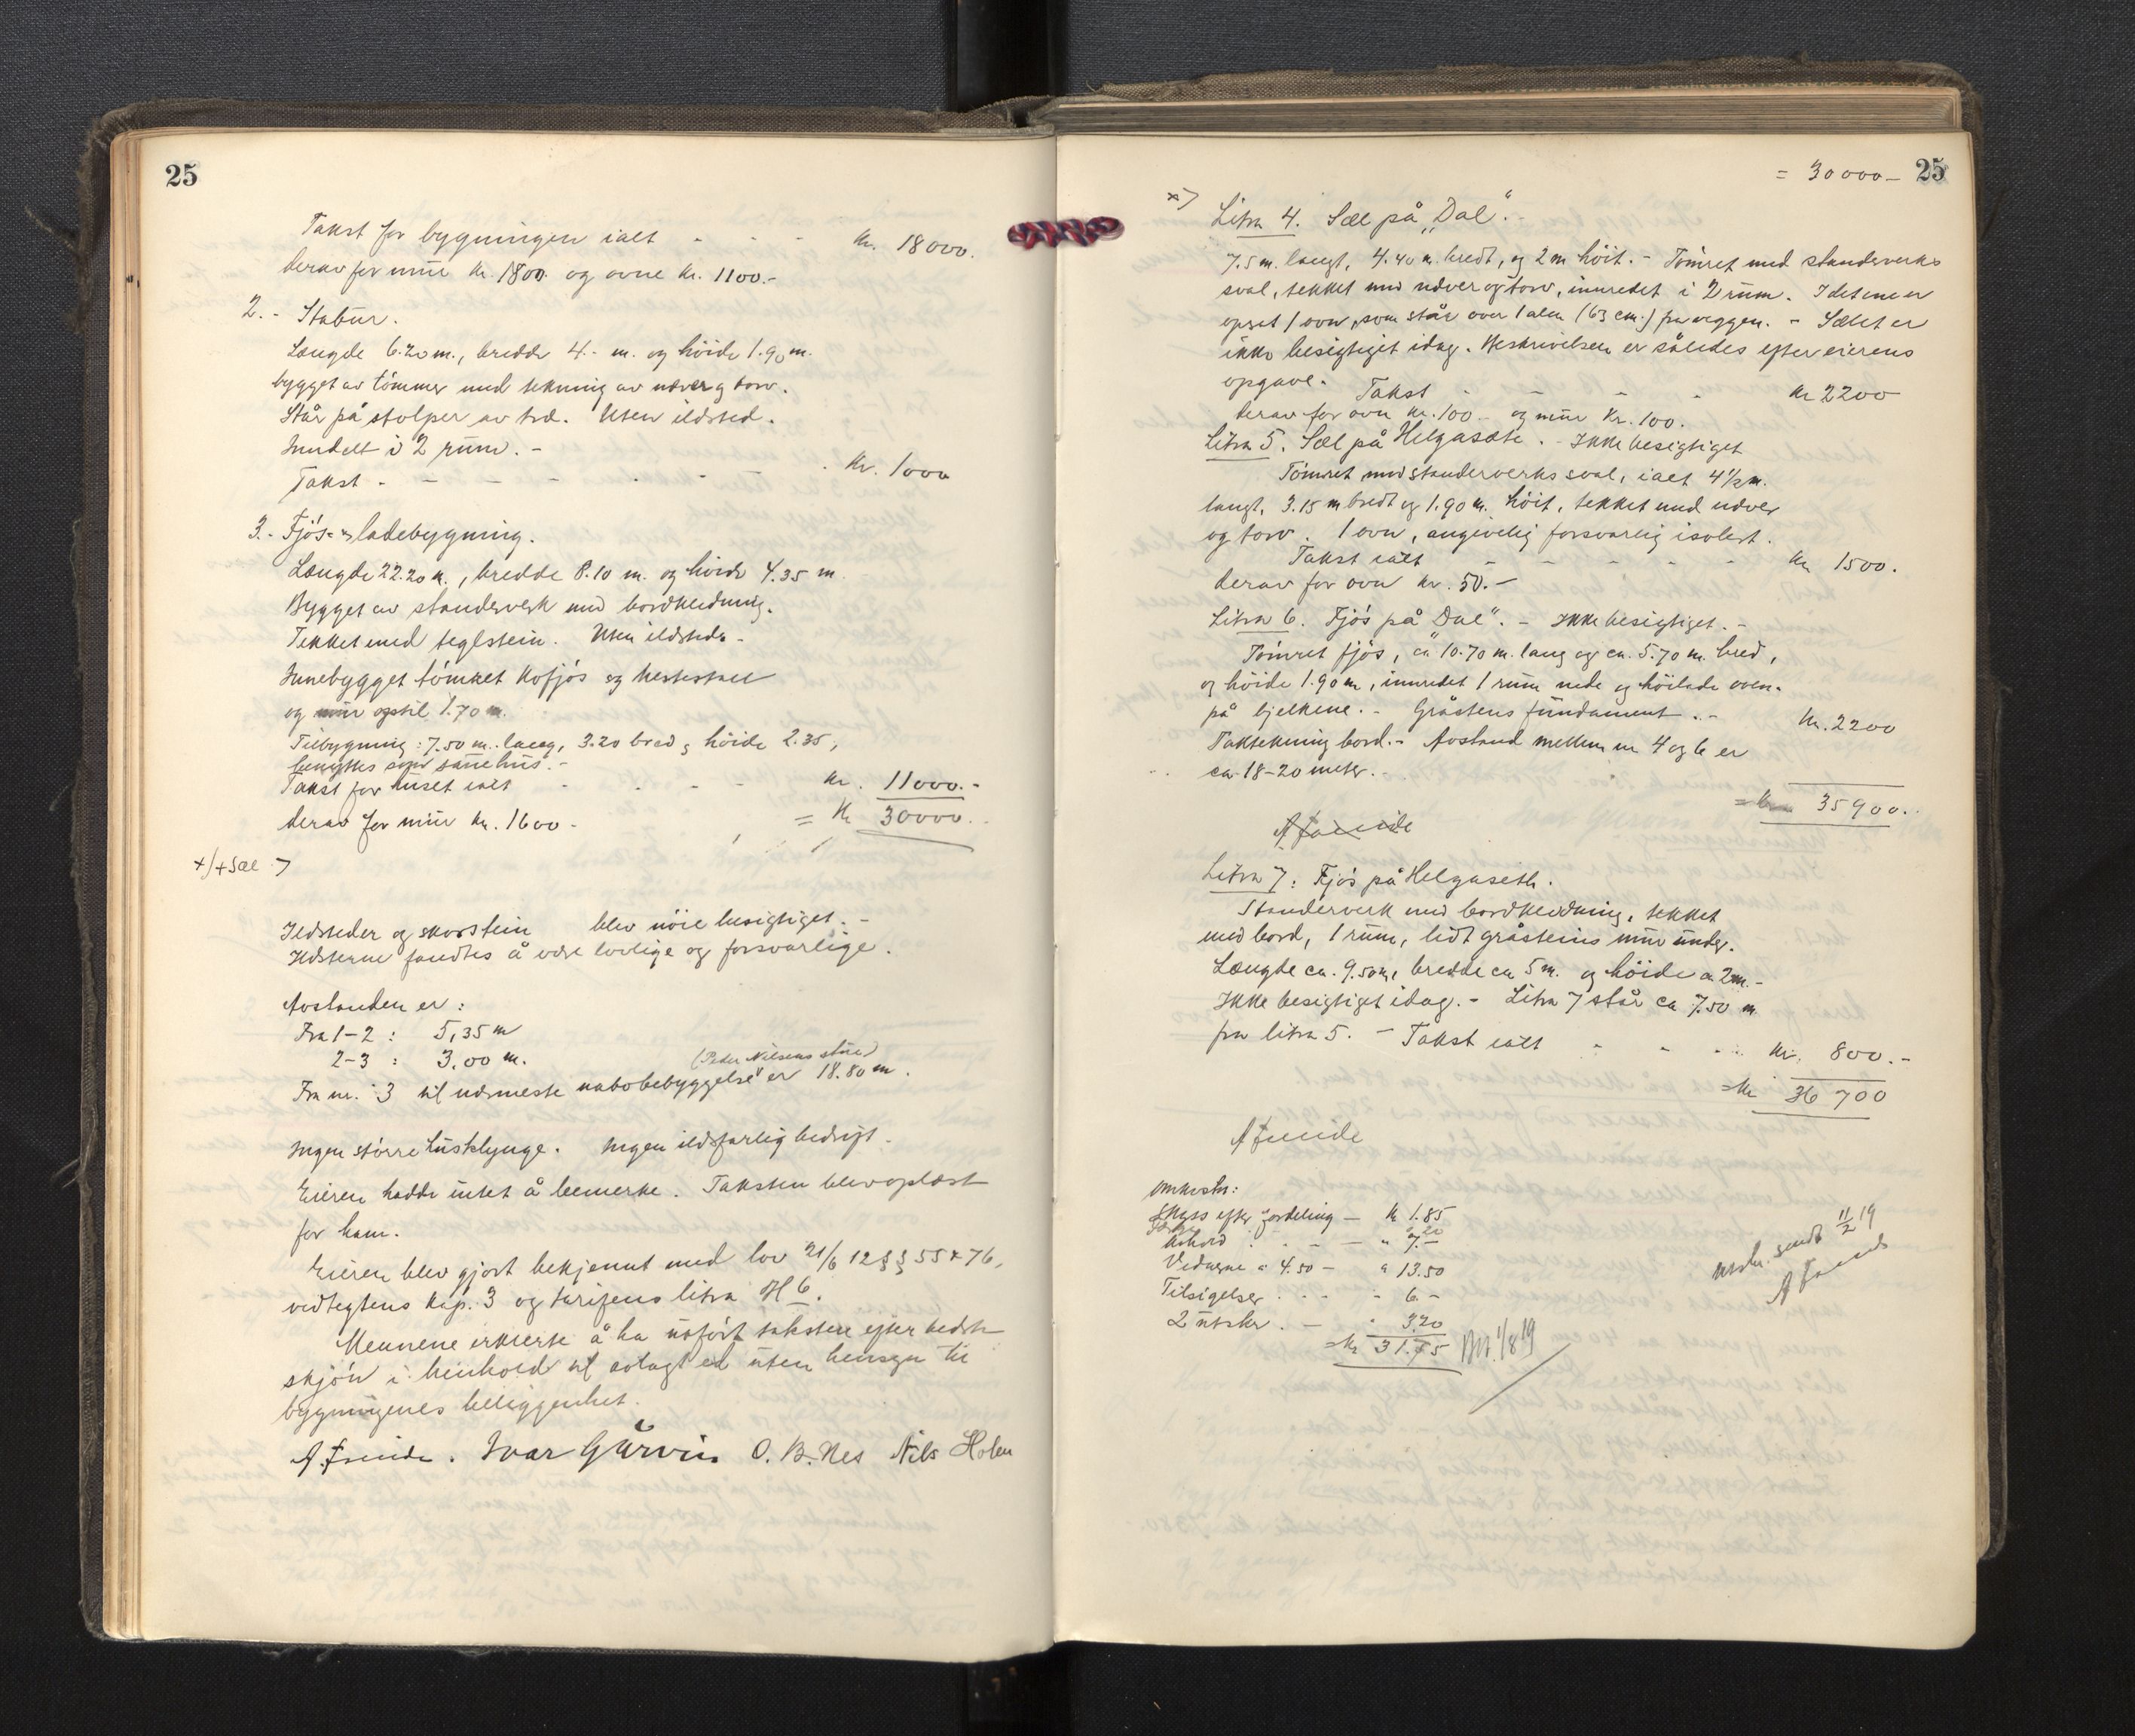 25
Takst for bygningen ialt - - - kr. 18000.
derav for mur kr. 1800. og ovne kr. 1100.-
2. - Stabur.
Længde 6.20 m., bredde 4.- m. og höide 1.90 m.
bygget av tömmer med tekning av næver og torv.
Står på stolper av træ. Uten ildsted.
Inndelt i 2 rum. -
Takst - - - - - - kr. 1000
3.- Fjös- og ladebygning.
Længde 22.20 m., bredde 8.10 m. og höide 4.35 m.
Bygget av standerverk med bordkledning.
Tekket med teglstein. Uten ildsteder -
Innebygget tömret kofjös og hestestall
og mur optil 1.70 m.
Tilbygning: 7.50 m. lang, 3.20 bred, höide 2.35,
benyttes som sauehus. -
Takst for huset ialt - - - - kr. 11000.-
derav for mur kr. 1600 - = Kr 30000.
+/+ Sæl
Ildsteder og skorstein blev nöie besigtiget. -
Ildstedene fandtes å være lovlige og forsvarlige.
Avstanden er:
Fra 1-2 : 5,35 m
2-3 : 3,00 m.
(Peder Nilsens stue)
Fra nr. 3 til nærmeste nabobebyggelse er 18.80 m.
Ingen större husklynge. Ingen ildsfarlig bedrift -
Eieren hadde intet å bemerke. Taksten blev oplæst
for ham.
Eieren blev gjort bekjennt med lov 21/6 12 §§ 55 & 76,
vedtegtens kap. 3 og tarifens litra H 6.
Mennene erklærte å ha utfört taksten efter bedste
skjön i henhold til avlagt ed uten hensyn til
bygningenes beliggenhet.
Ivar Gurvin O. B. Nes Nils Holen
= 30000 - 25
x)
Litra 4. Sæl på „Dal".
7.5 m. langt, 4.40 m. bredt, og 2 m höit. - Tömret med standerverks
sval, tekket med næver og torv, innredet i 2 rum. I det ene er
opsat 1 ovn, som står over 1 alen (63 cm.) fra veggen. - Sælet er
ikke besigtiget idag. Beskrivelsen er således efter eierens
opgave. Takst - - - - kr 2200
derav for ovn kr. 100 - og mur Kr. 100.
Litra 5. Sæl på Helgasæte. - Ikke besigtiget
Tömret med standerverks sval, ialt 4 1/2 m.
langt, 3.15 m bredt og 1.90 m. höit, tekket med næver
og torv. 1 ovn, angivelig forsvarlig isolert.
Takst ialt - - - - - kr 1500.
derav for ovn kr. 50. -
Litra 6. Fjös på „Dal". - Ikke besigtiget. -
Tömret fjös, ca 10.70 m. lang og ca. 5.70 m. bred,
og höide 1.90 m, innredet 1 rum nede og höilade oven-
på bjelkene. - Gråstens fundament. - kr. 2200
Taktekning bord. - Avstand mellem nr 4 og 6 er
ca 18-20 meter. -
= Kr 35900.
Litra 7: Fjös på Helgaseth.
Standerverk med bordkledning, tekket
med bord, 1 rum, lidt gråsteins mur under.
Længde ca. 9.50 m, bredde ca 5 m. og höide ca 2 m. -
Ikke besigtiget idag. - Litra 7 står ca 7.50 m
fra litra 5. - Takst ialt - - - kr. 800.-
= Kr 36 700
Omkostn:
Skyss efter fordeling - kr 1.85
Vidnerne a 4.50 - " 13.50
Tilsigelser - - - " 6.-
2 utskr. - " 3.20
= Kr 31.75 Bet. 1/8 19
Utskr. sendt 11/2 19